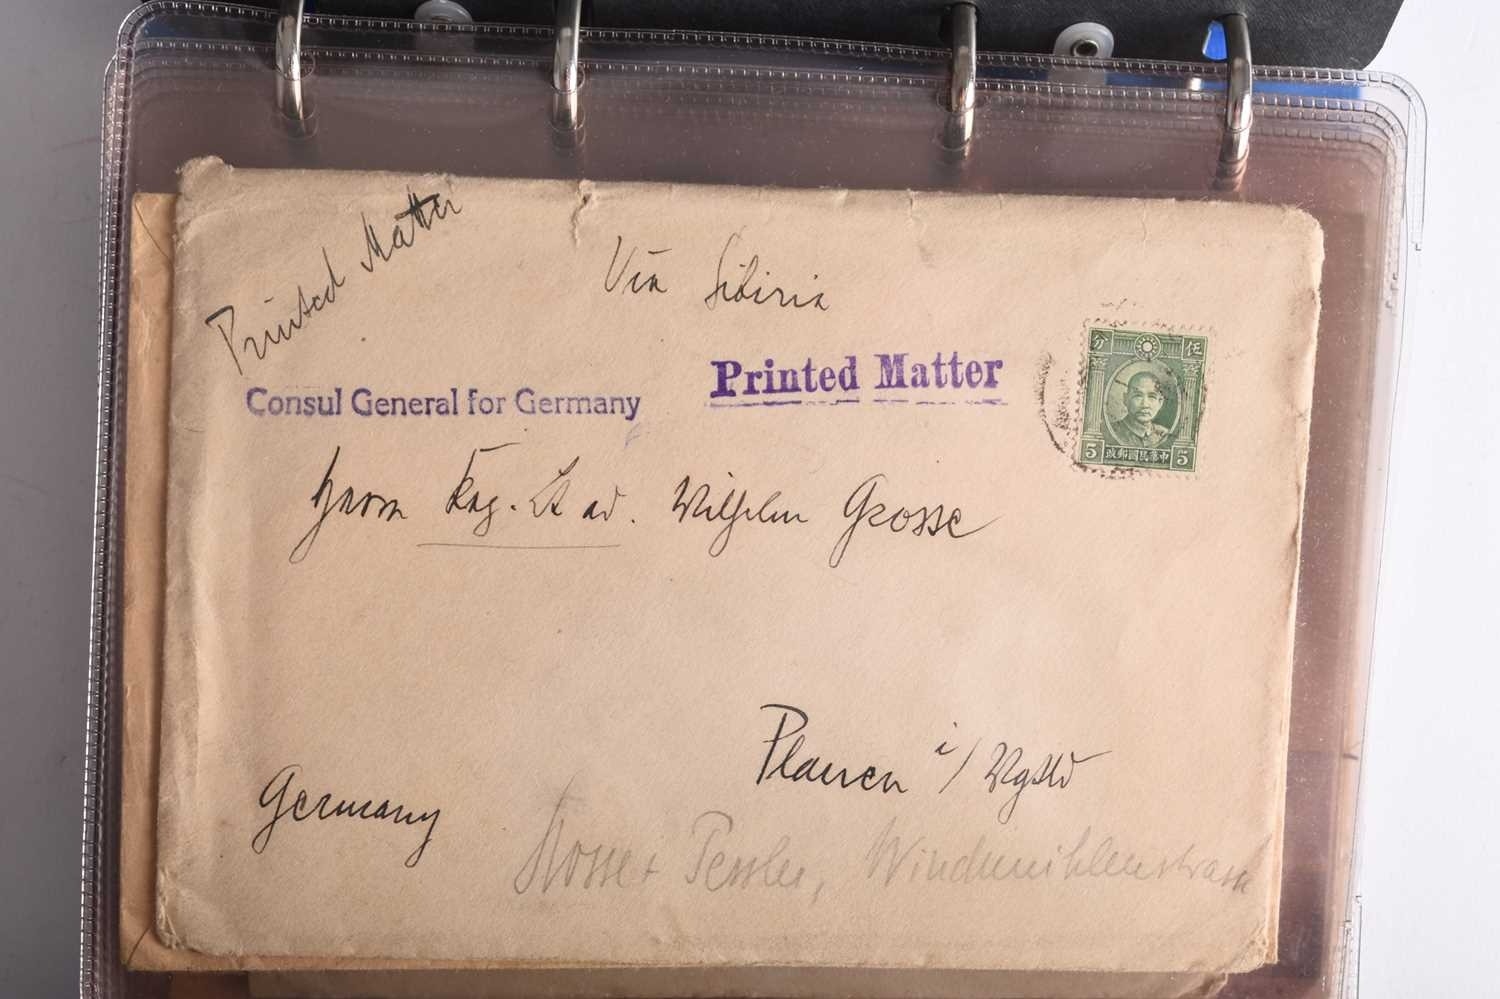 Printed Matter
Via Sibiria
Printed Matter
Consul General for Germany
分 伍
5 中華民國郵政 5
Herrn Wilhelm Grosse
Plauen i/Vgtld
Germany
Windmühlenstrasse